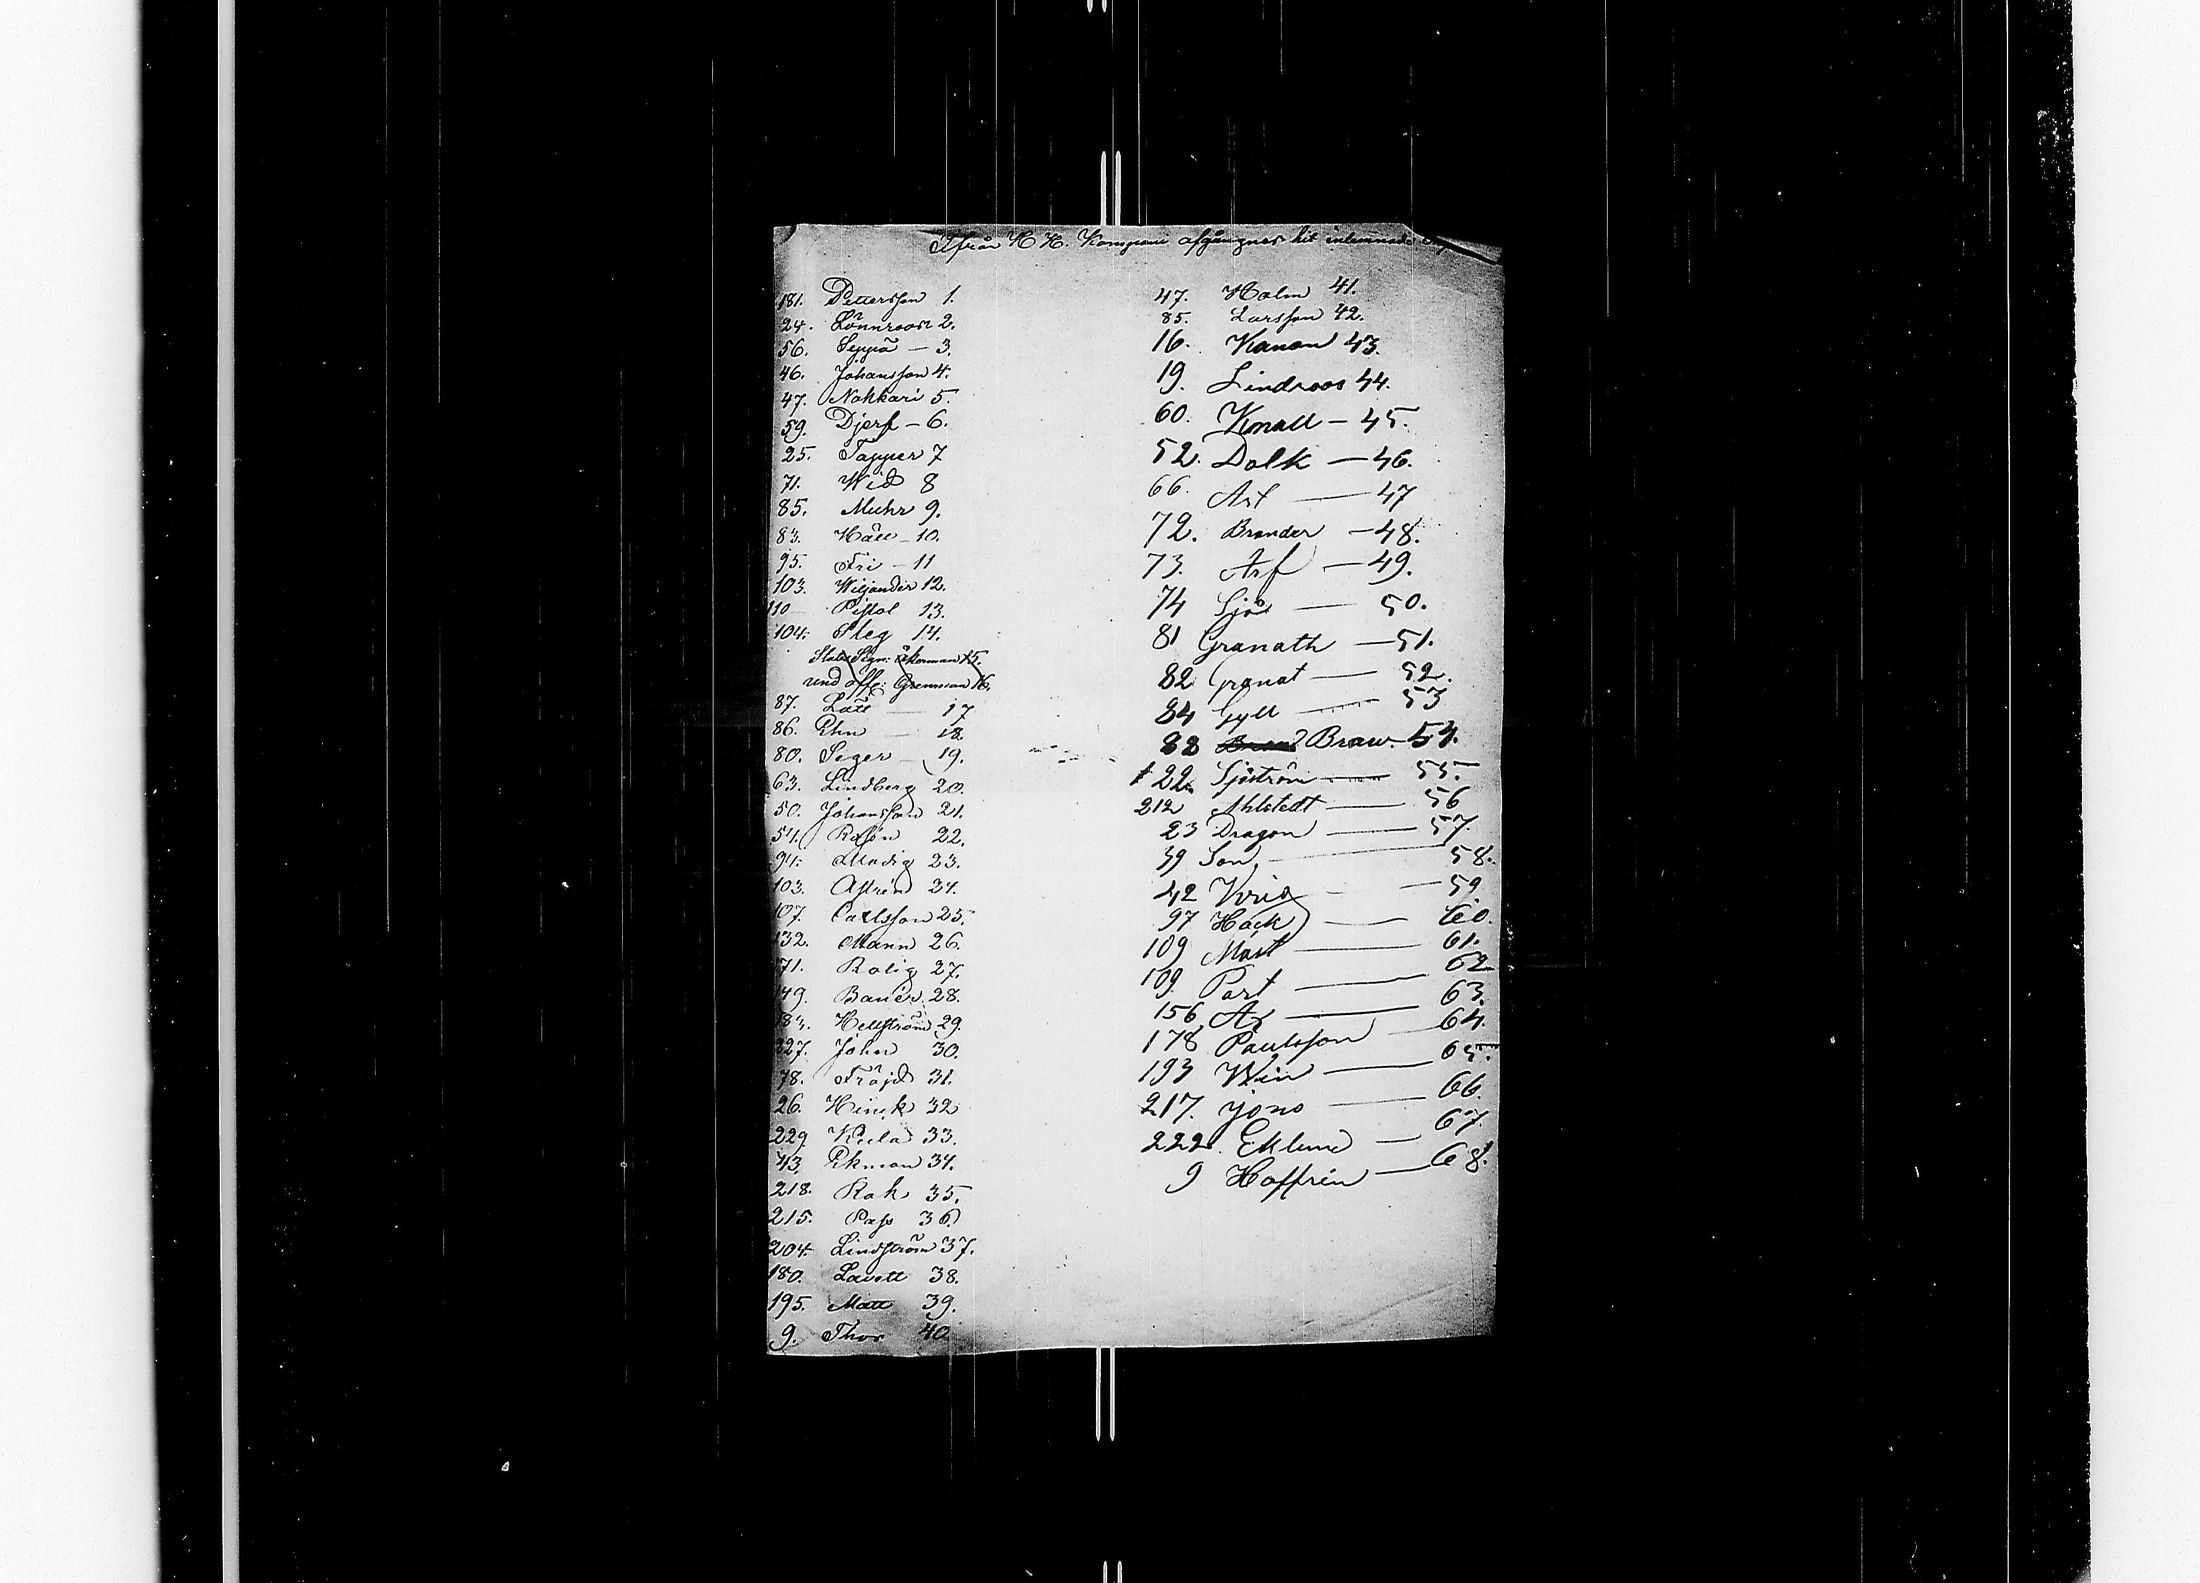 Ifrån H H. Kompani afgångnes hit inlemnade
181. Pettersson 1.
24. Lönnroos 2.
56. Seppä — 3.
46. Johansson 4.
47. Nahkari 5.
59. Djerf — 6.
25. Tapper 7
71. Wid 8
85. Muhr 9.
83. Håll — 10.
95. Fri — 11
103. Wiljander 12.
110 Pistol 13.
104. Steg 14.
Åkerman 15.
und offc: Grenman 16.
87. Lätt — 17
86. Ehn — 18
80. Seger — 19.
63. Lindberg 20.
50. Johansson 21.
54. Rosén 22.
94. Modig 23.
103. Astrén 24.
107. Carlsson 25.
132. Mann 26.
71. Rolig 27.
149. Banér 28.
183. Hellström 29.
227. John 30.
78. Fröjd 31.
26. Hinck 32
229 Kula 33.
43. Ekman 34.
218. Rak 35.
215. Pass 36.
204. Lindström 37.
180. Lavett 38.
195. Matt 39.
9. Thor 40
47. Holm 41.
85. Larsson 42.
16. Kanon 43.
19. Lindroos 44.
60. Knall — 45.
52. Dolk — 46.
66. Art — 47
72. Brander — 48.
73. Arf — 49.
74 Sjö — 50.
81 Granath — 51.
82 Granat — 52.
84 Gyll — 53
88 Braw. 54.
122. Sjöström — 55.
212 Ahlstedt — 56
23 Dragon — 57.
39 Son. — 58.
42 Krig — 59
97 Hack — 60.
109 Mast — 61.
109. Part — 62
156 Ax — 63.
178 Paulsson — 64.
193 Win — 65.
217. Jons — 66.
222. Eklund — 67.
9 Hoffrén — 68.